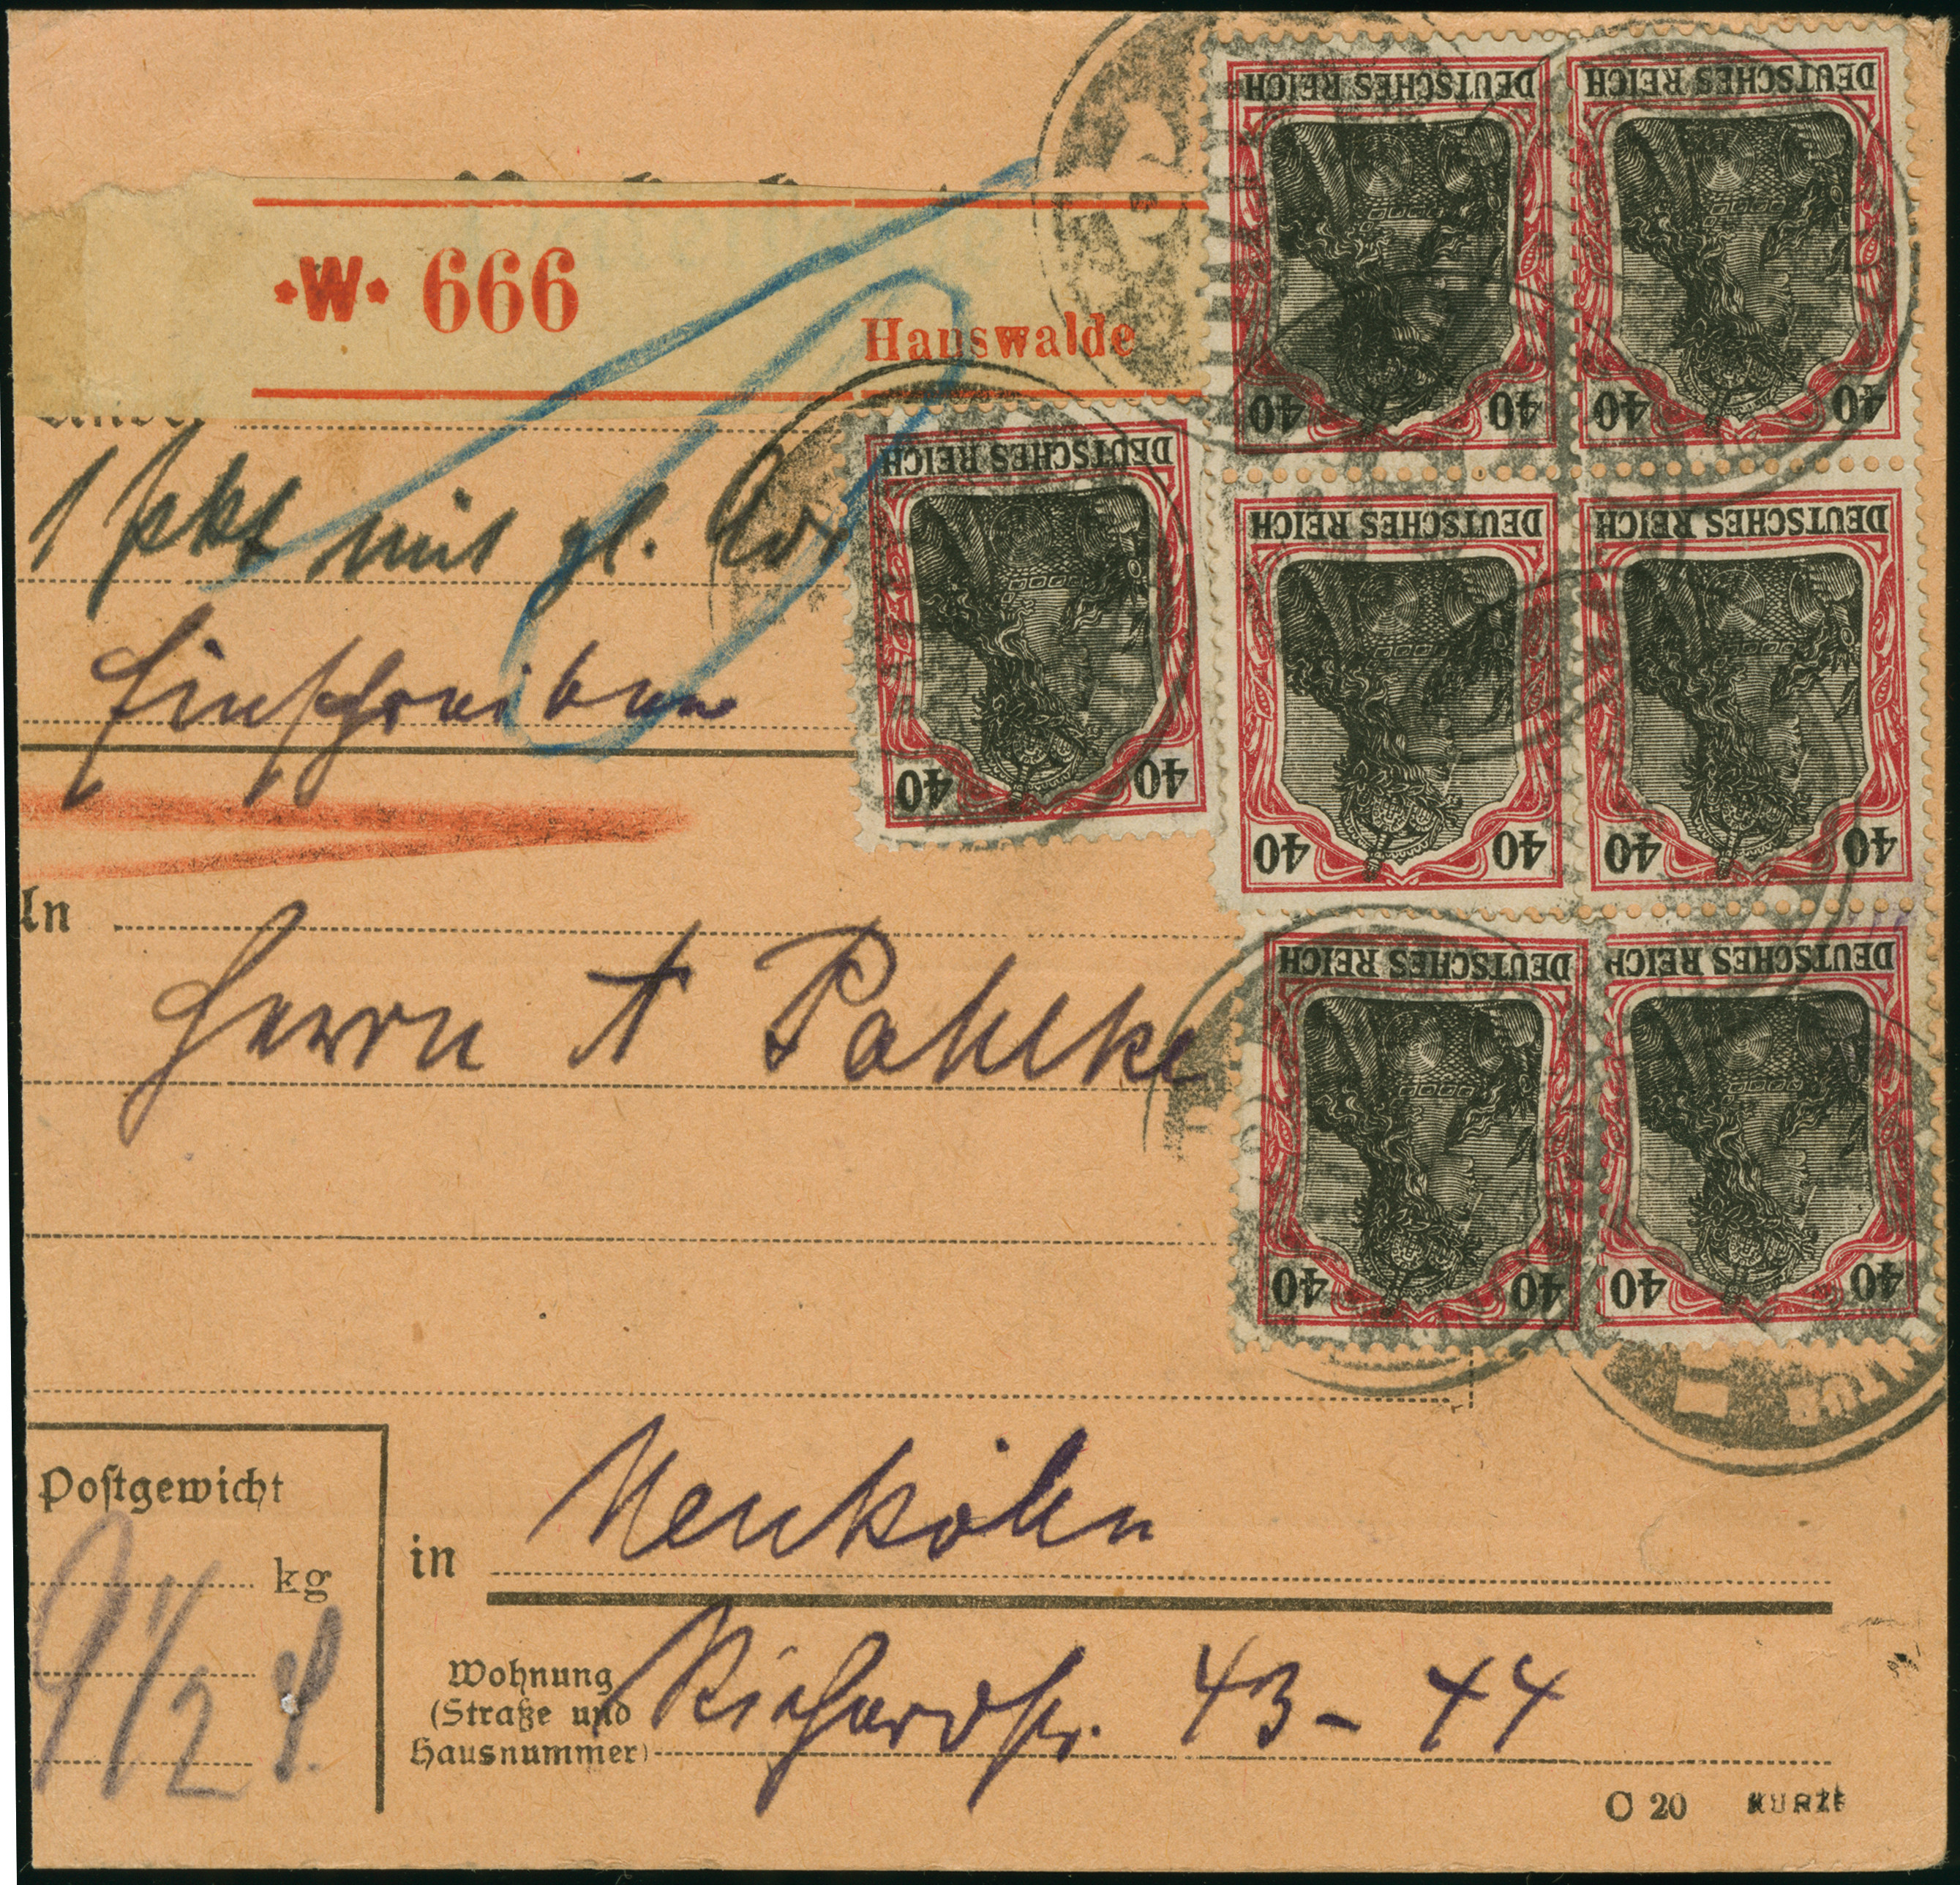 *W* 666
Hauswalde
DEUTSCHES REICH
40 40
DEUTSCHES REICH
40 40
DEUTSCHES REICH
40 40
DEUTSCHES REICH
40 40
DEUTSCHES REICH
40 40
DEUTSCHES REICH
40 40
DEUTSCHES REICH
40 40
1 Pkt mit gl.
Einschreiben
An
Herrn A Pahlke
Postgewicht
kg
9 1/2
in Neukölln
Wohnung
(Straße und
Hausnummer)
Richardstr. 43-44
C 20 KURZE